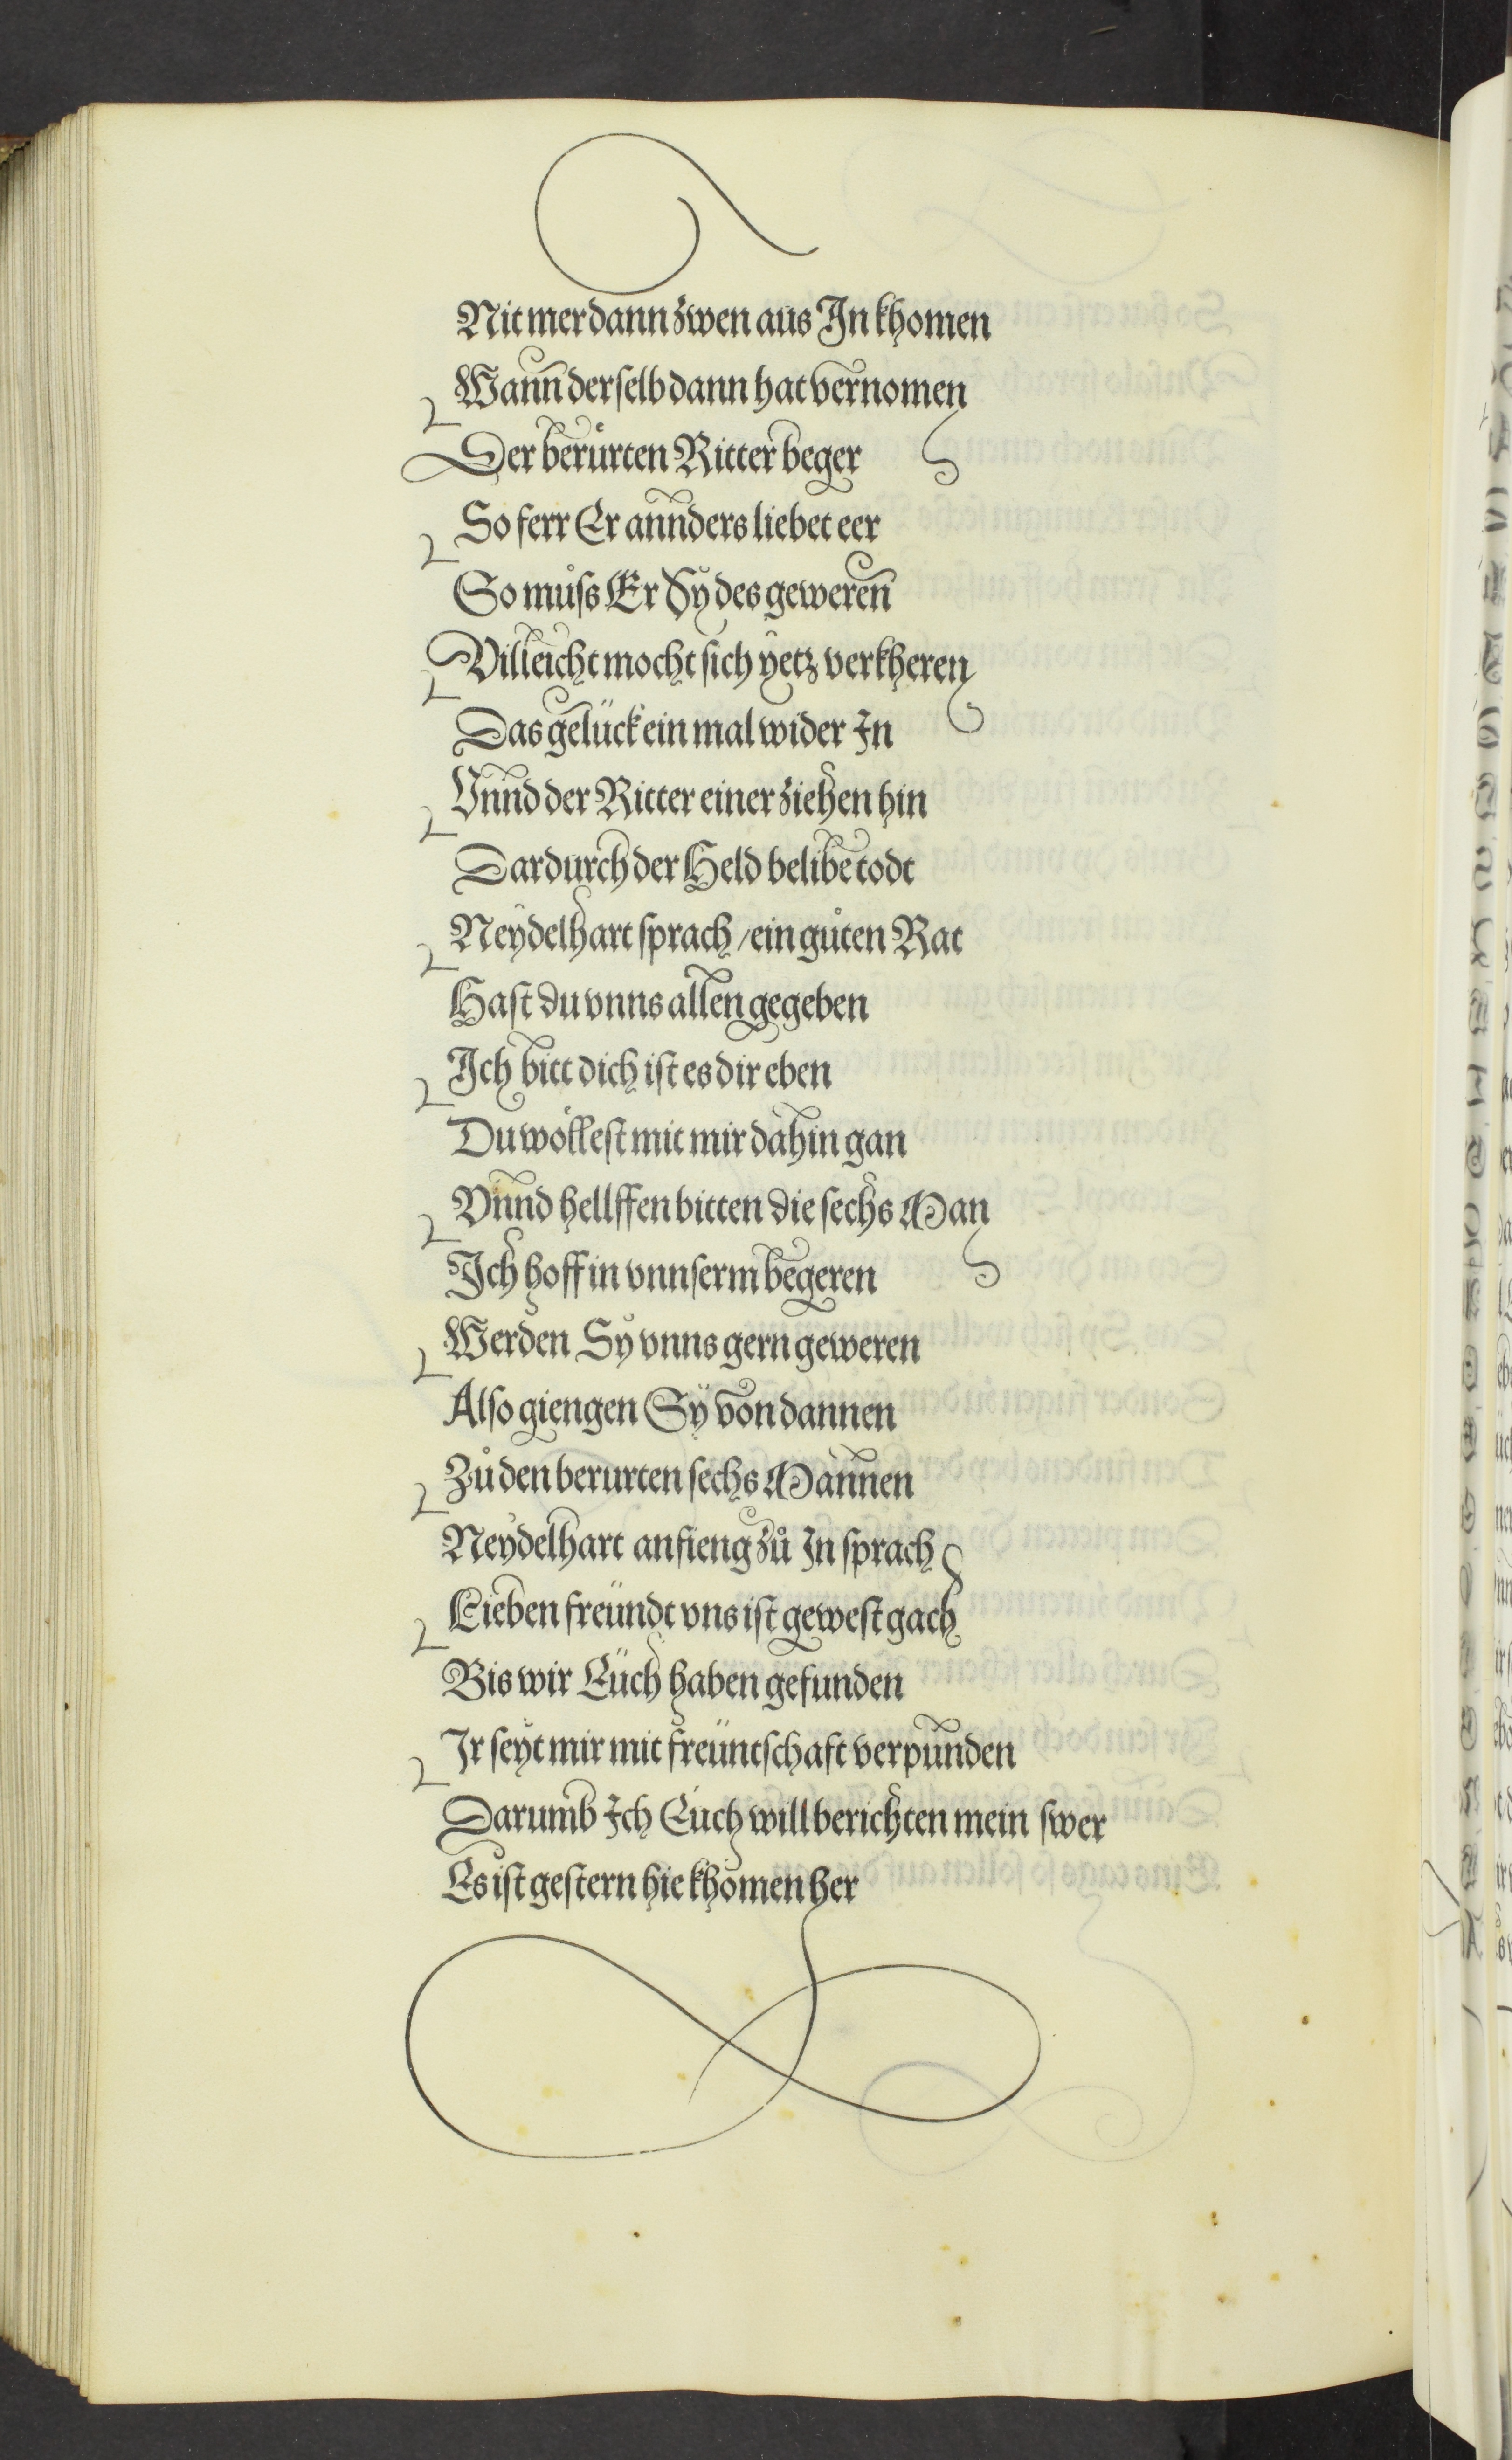 Nit mer dann zwen aus In khomen
Wann derselb dann hat vernomen
Der berůrten Ritter beger
So ferr Er annders liebet eer
So můss Er Sy des geweren
Villeicht mocht sich yetz verkheren
Das gelück ein mal wider In
Vnnd der Ritter einer ziehen hin
Dardurch der Held belibe todt
Neydelhart sprach / ein gůten Rat
Hast du vnns allen gegeben
Ich bitt dich ist es dir eben
Du wöllest mit mir dahin gan
Vnnd hellffen bitten die sechs Man
Ich hoff in vnnserm begeren
Werden Sy vnns gern geweren
Also giengen Sÿ von dannen
Zů den berurten sechs Mannen
Neydelhart anfieng zů In sprach
Lieben freündt vns ist gewest gach
Bis wir Eüch haben gefunden
Ir seyt mir mit freüntschaft verpunden
Darumb Ich Euch will berichten mein swer
Es ist gestern hie khomen her